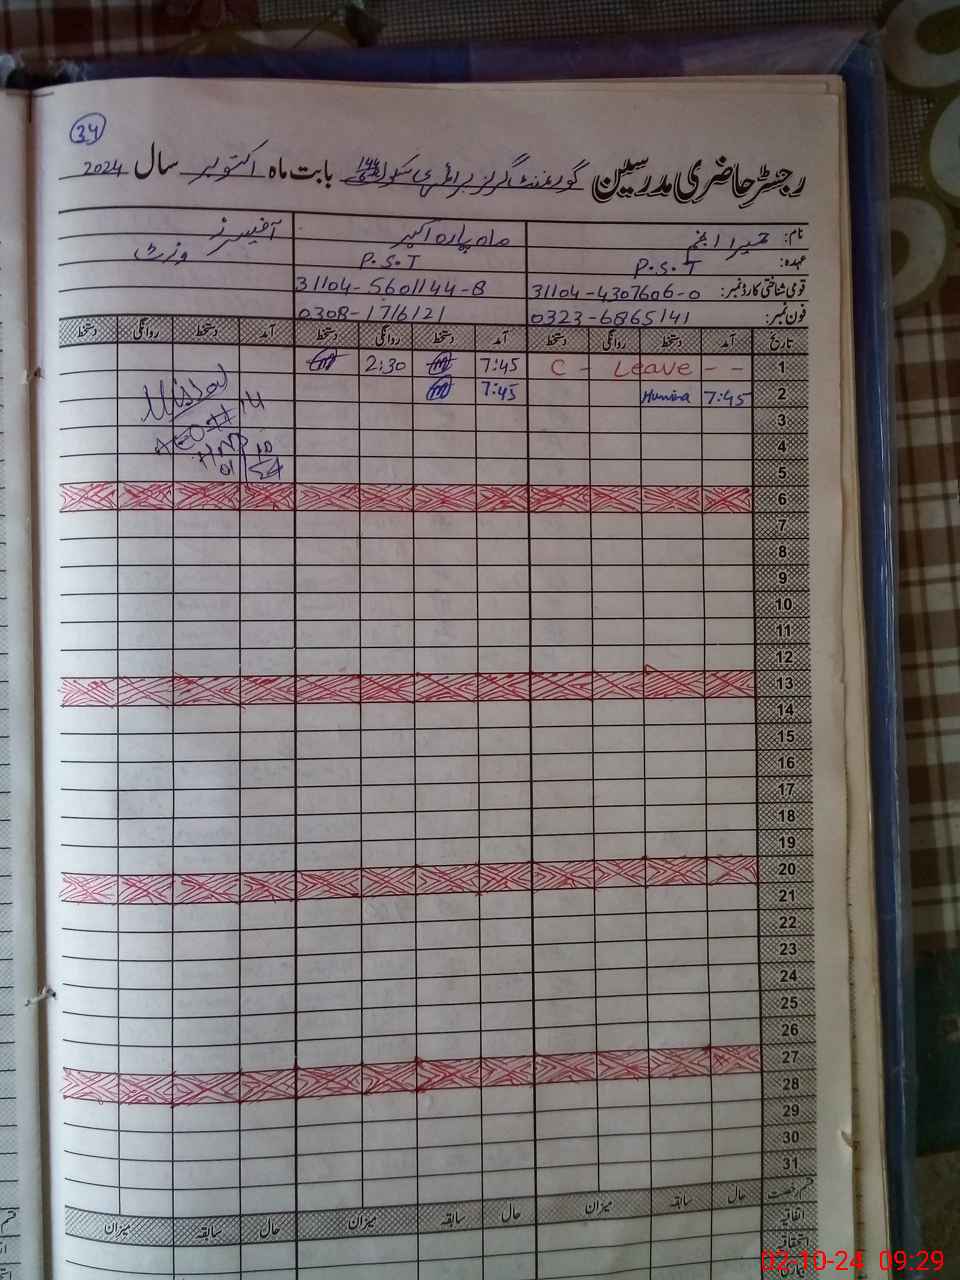 34
رجسٹر حاضری مدرسین گورنمنٹ گرلز پرائمری سکول بابت ماہ اکتوبر سال 2024
نام: حمیرا انجم ماہ پارہ اکبر آفیسرز وزٹ
عہدہ: P.S.T P.S.T
قومی شناختی کارڈ نمبر: 31104-4307606-0 31104-5601144-8
فون نمبر: 0323-6865141 0308-1716121
تاریخ آمد دستخط روانگی دستخط آمد دستخط روانگی دستخط آمد دستخط روانگی دستخط
1 C - Leave - - 7:45 2:30
2 7:45 Humira 7:45
3
4
5
6
7
8
9
10
11
12
13
14
15
16
17
18
19
20
21
22
23
24
25
26
27
28
29
30
31
قسم رخصت حال سابقہ میزان حال سابقہ میزان حال سابقہ میزان
اتفاقیہ
استحقاقیہ
02-10-24 09:29